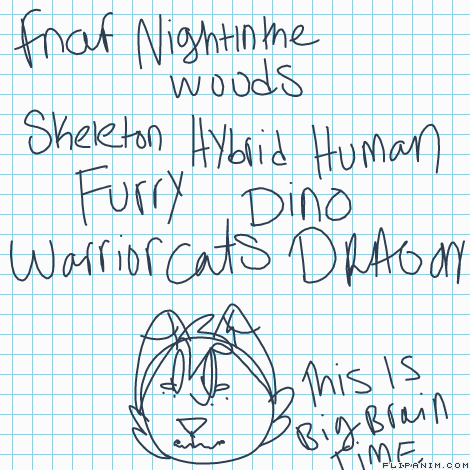 Fnaf NightInthe
woods
Skeleton Hybrid Human
Furry Dino
Warriorcats DRAgon
This Is
BigBrain
TIME.
FLIPANIM.COM